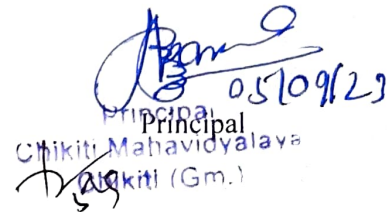 05/09/23
Principal
Principal
Chikiti Mahavidyalaya
Chikiti (Gm.)